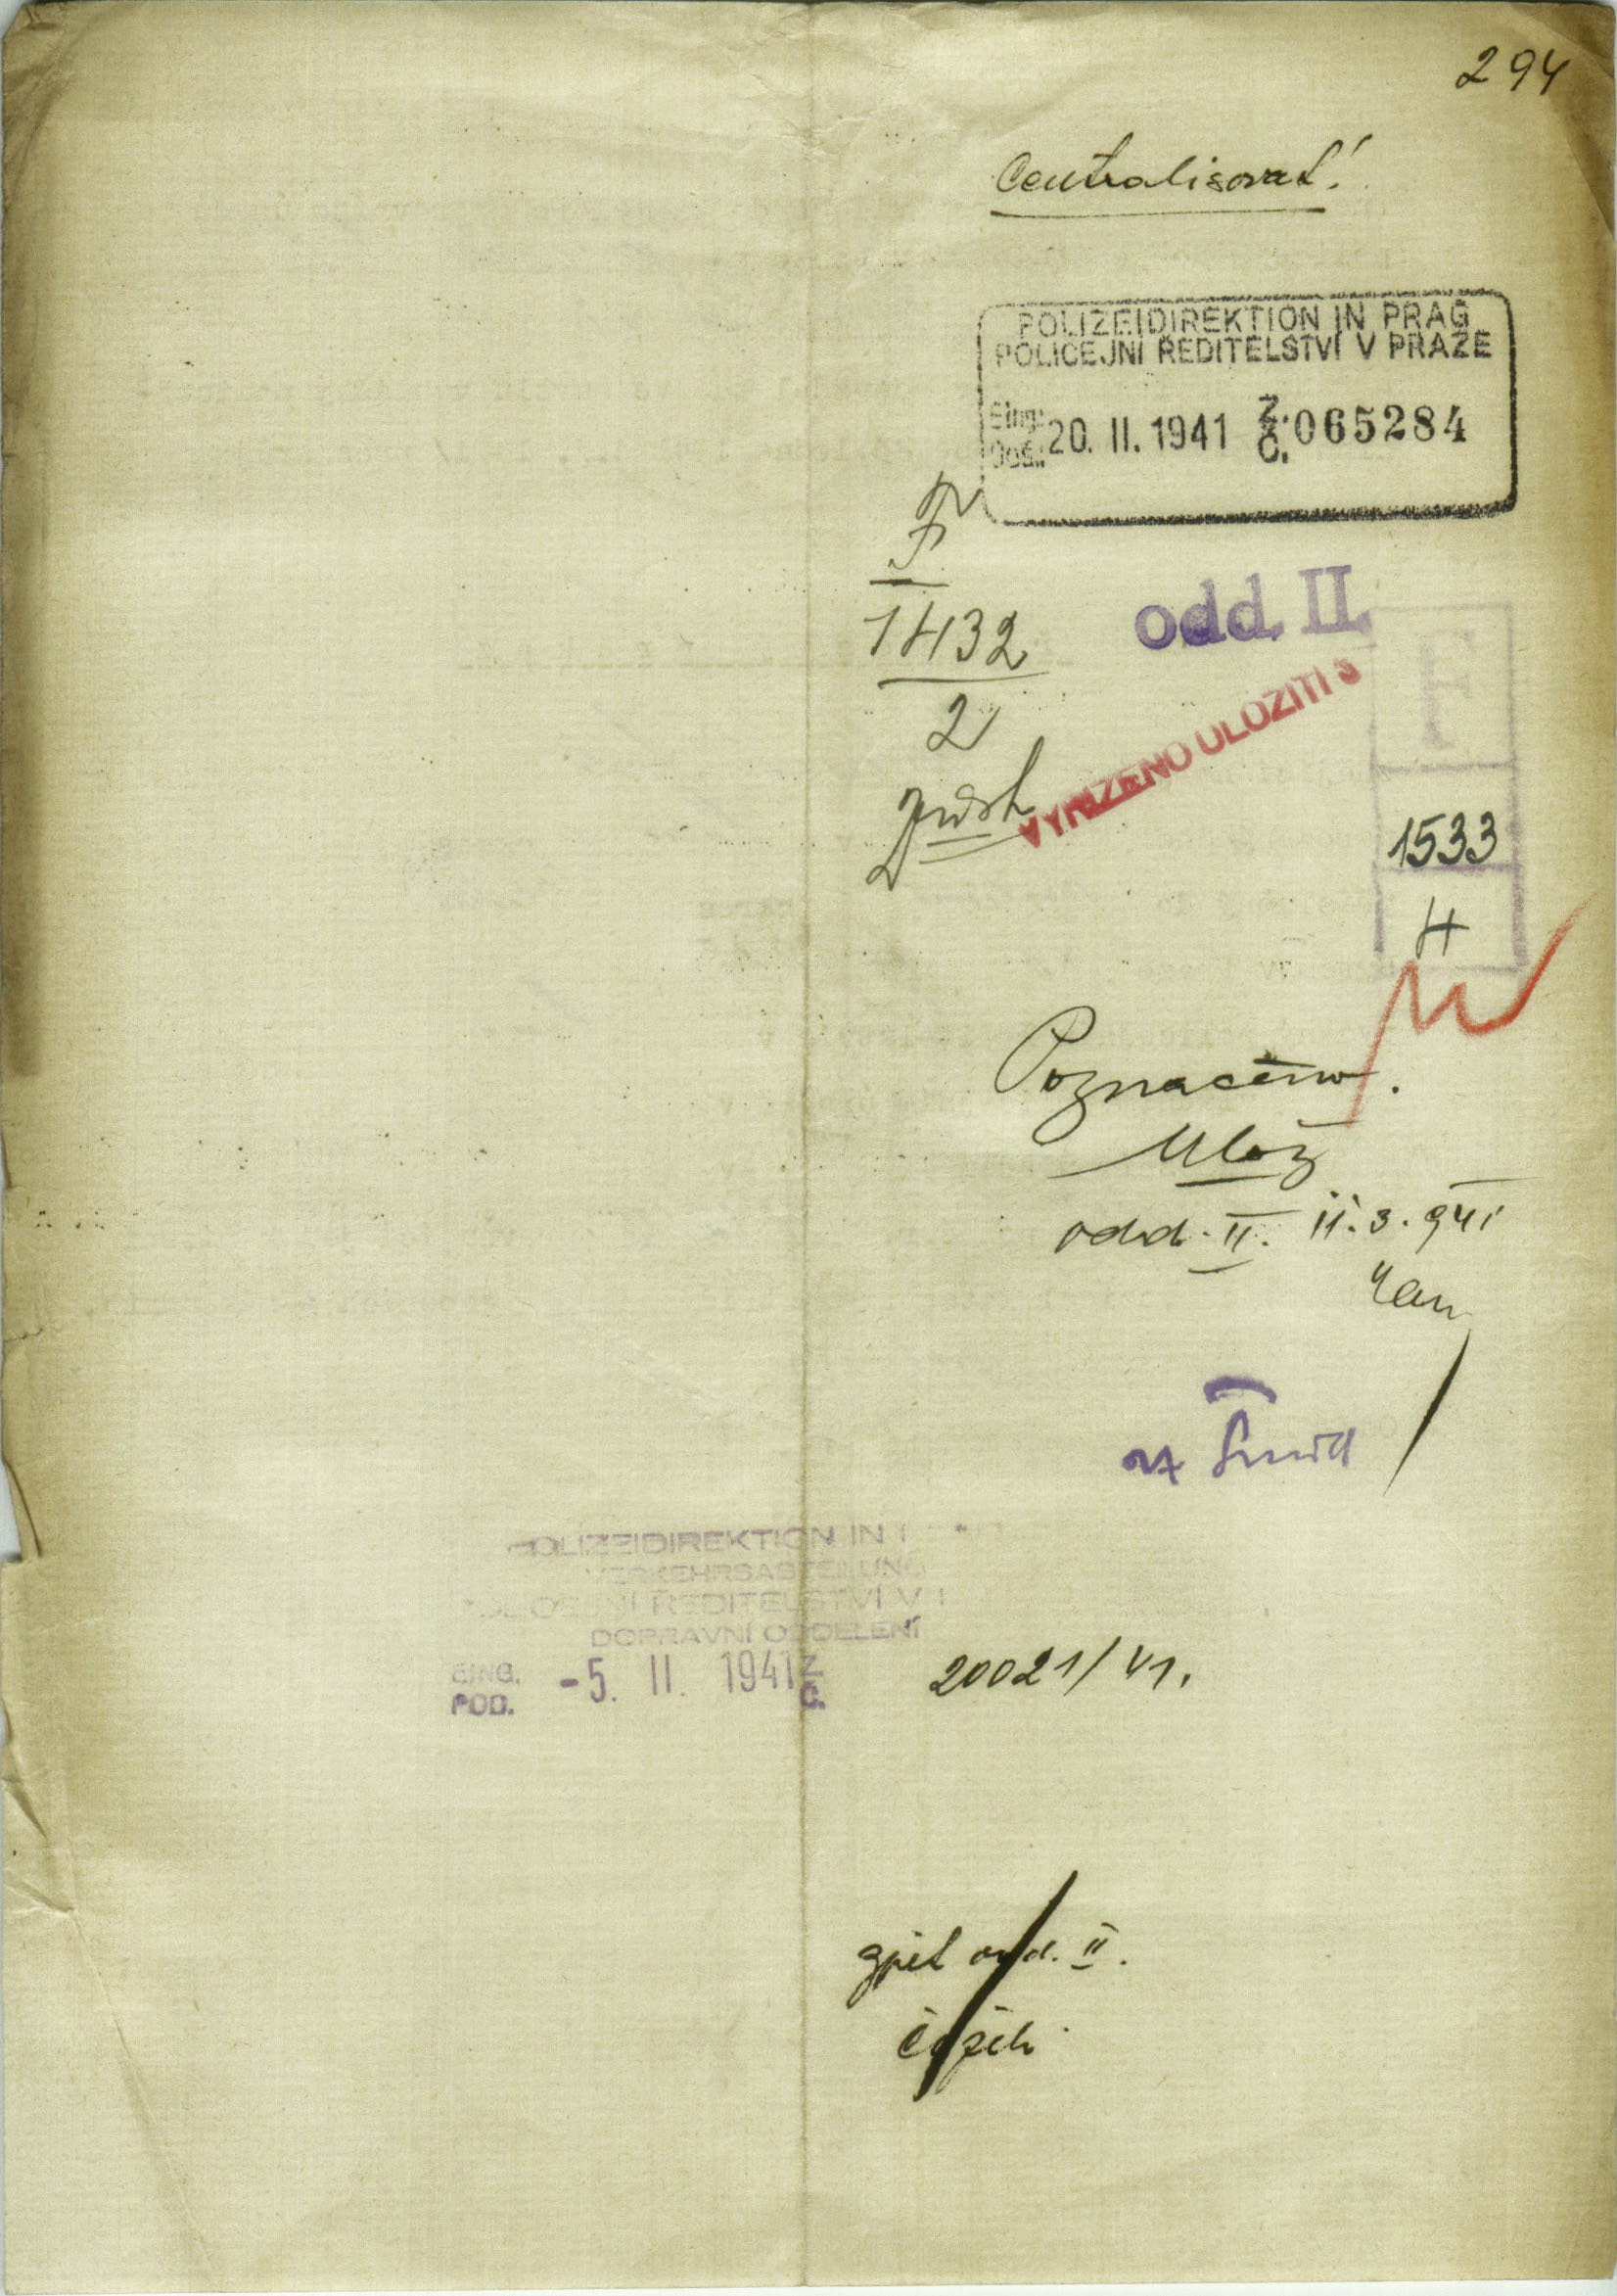 294
Centralisovat!
POLIZEIDIREKTION IN PRAG
POLICEJNÍ ŘEDITELSTVÍ V PRAZE
Eing.: Doš.: 20. II. 1941 Z. Č. 065284
F
1432
2
odd. II.
VYŘÍZENO ULOŽITI
F
1533
4
Poznačeno.
Ulož
odd. II. 11.3.941
POLIZEIDIREKTION IN
VERKEHRSABTEILUNG
ŘEDITELSTVÍ V
DOPRAVNÍ ODDĚLENÍ
EING. POD. -5. II. 1941 Z. Č. 20021/41.
zpět odd. II.